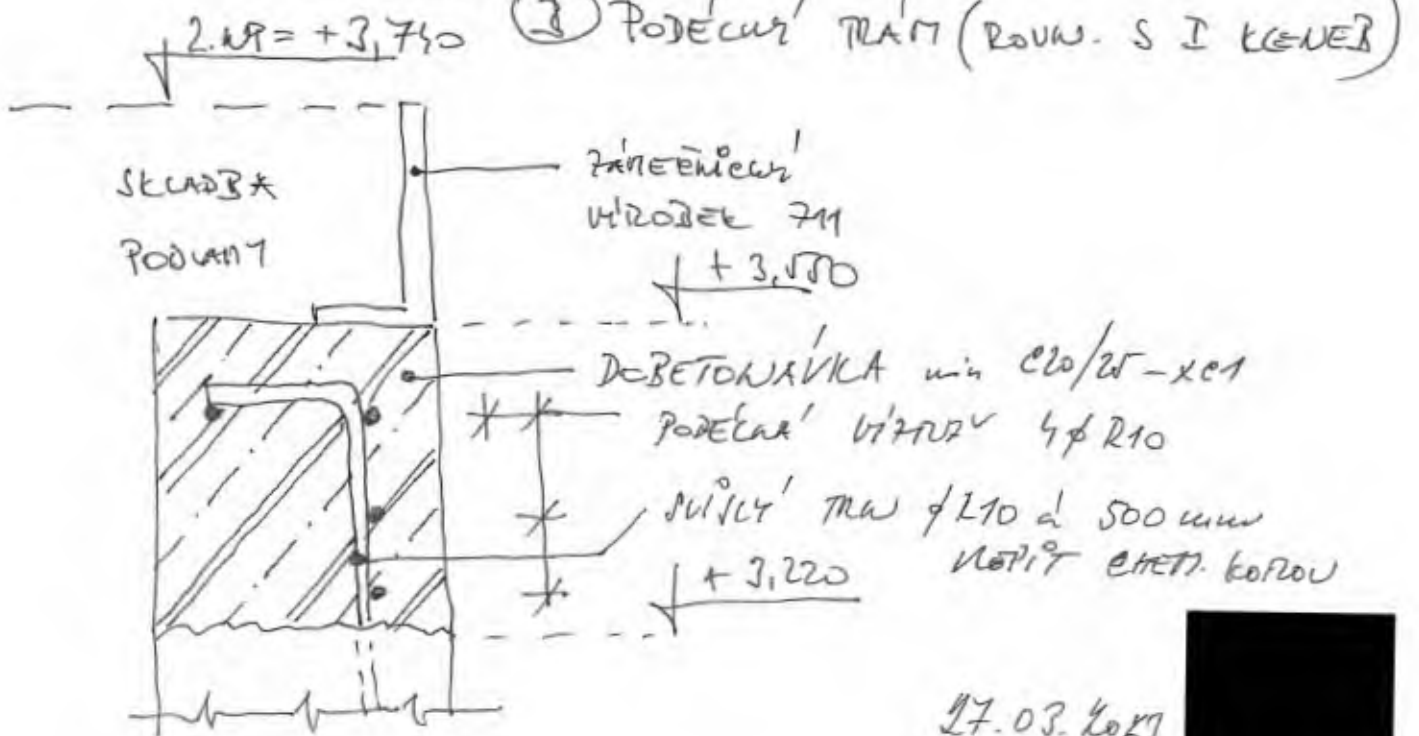 2.NP = +3,740
③ PODÉLNÝ TRÁM (ROVN. S I KLENEB)
SKLADBA
PODLAHY
ZÁMEČNICKÝ
VÝROBEK 711
+ 3,550
DOBETONÁVKA min C20/25-XC1
PODÉLNÁ VÝZTUŽ 4ϕR10
SVISLÝ TRN ϕR10 á 500 mm
VLEPIT CHEM. KOTVOU
+ 3,220
27.03.